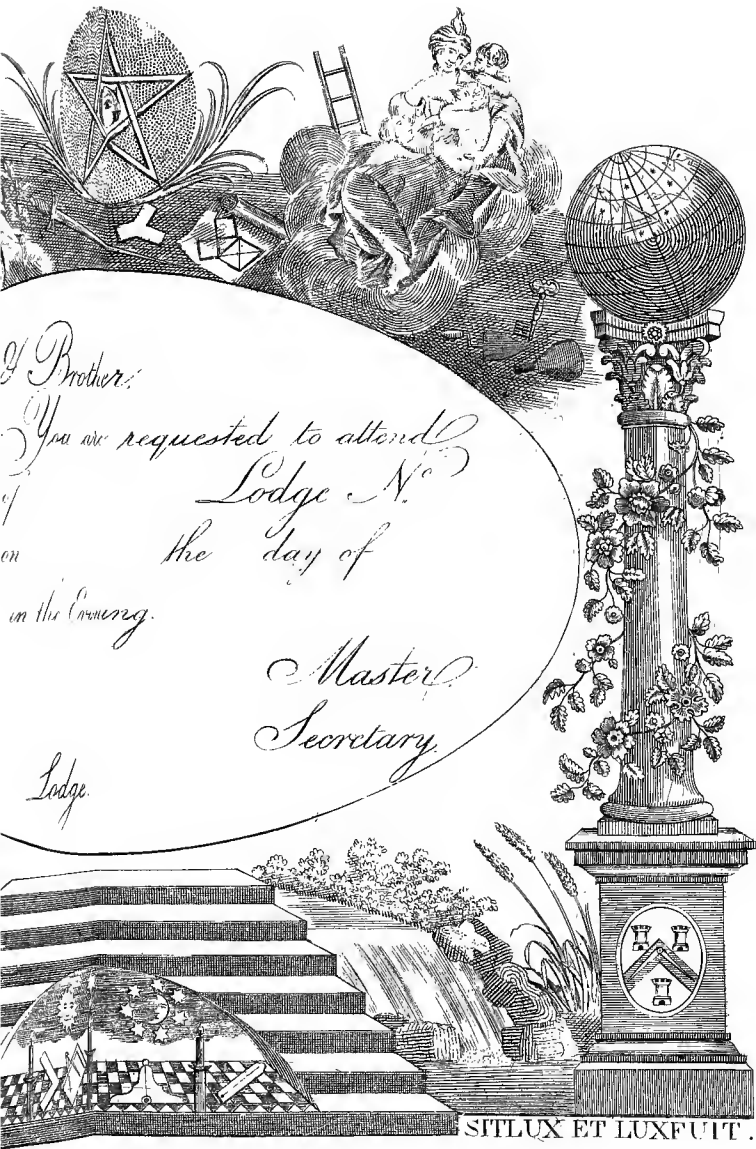 Brother.
You are requested to attend
of Lodge Nº
on the day of
in the Evening.
Master
Secretary
Lodge.
SIT LUX ET LUX FUIT.